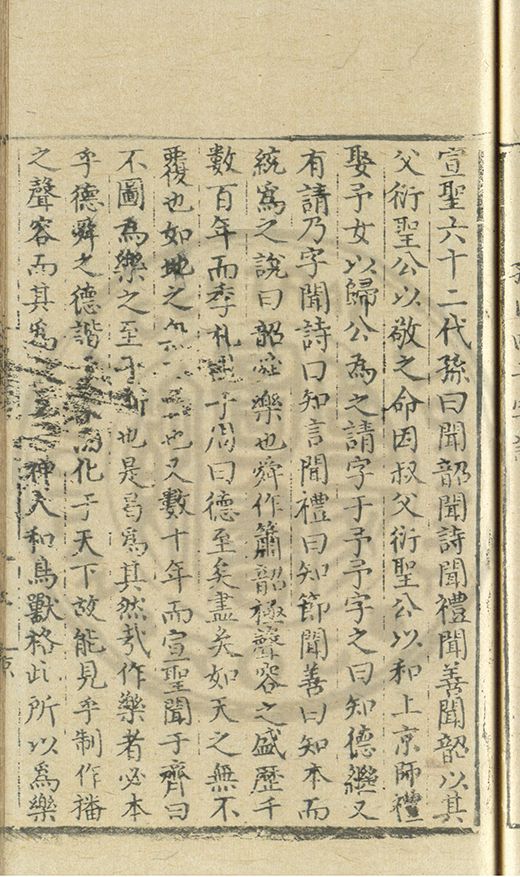 宣聖六十二代孫曰聞韶聞詩聞禮聞善聞韶以其
父衍聖公以敬之命因叔父衍聖公以和上京師禮
娶予女以歸公為之請字于予予字之曰知德繼又
有請乃字聞詩曰知言聞禮曰知節聞善曰知本而
統為之說曰韶舜樂也舜作簫韶極聲容之盛歷千
數百年而季札于周曰德至矣盡矣如天之無不
覆也如地之也又數十年而宣聖聞于齊曰
不圖為樂之至于斯也是曷為其然哉作樂者必本
乎德舜之德諧化于天下故能見乎制作播
之聲容而其為神人和鳥獸格此所以為樂